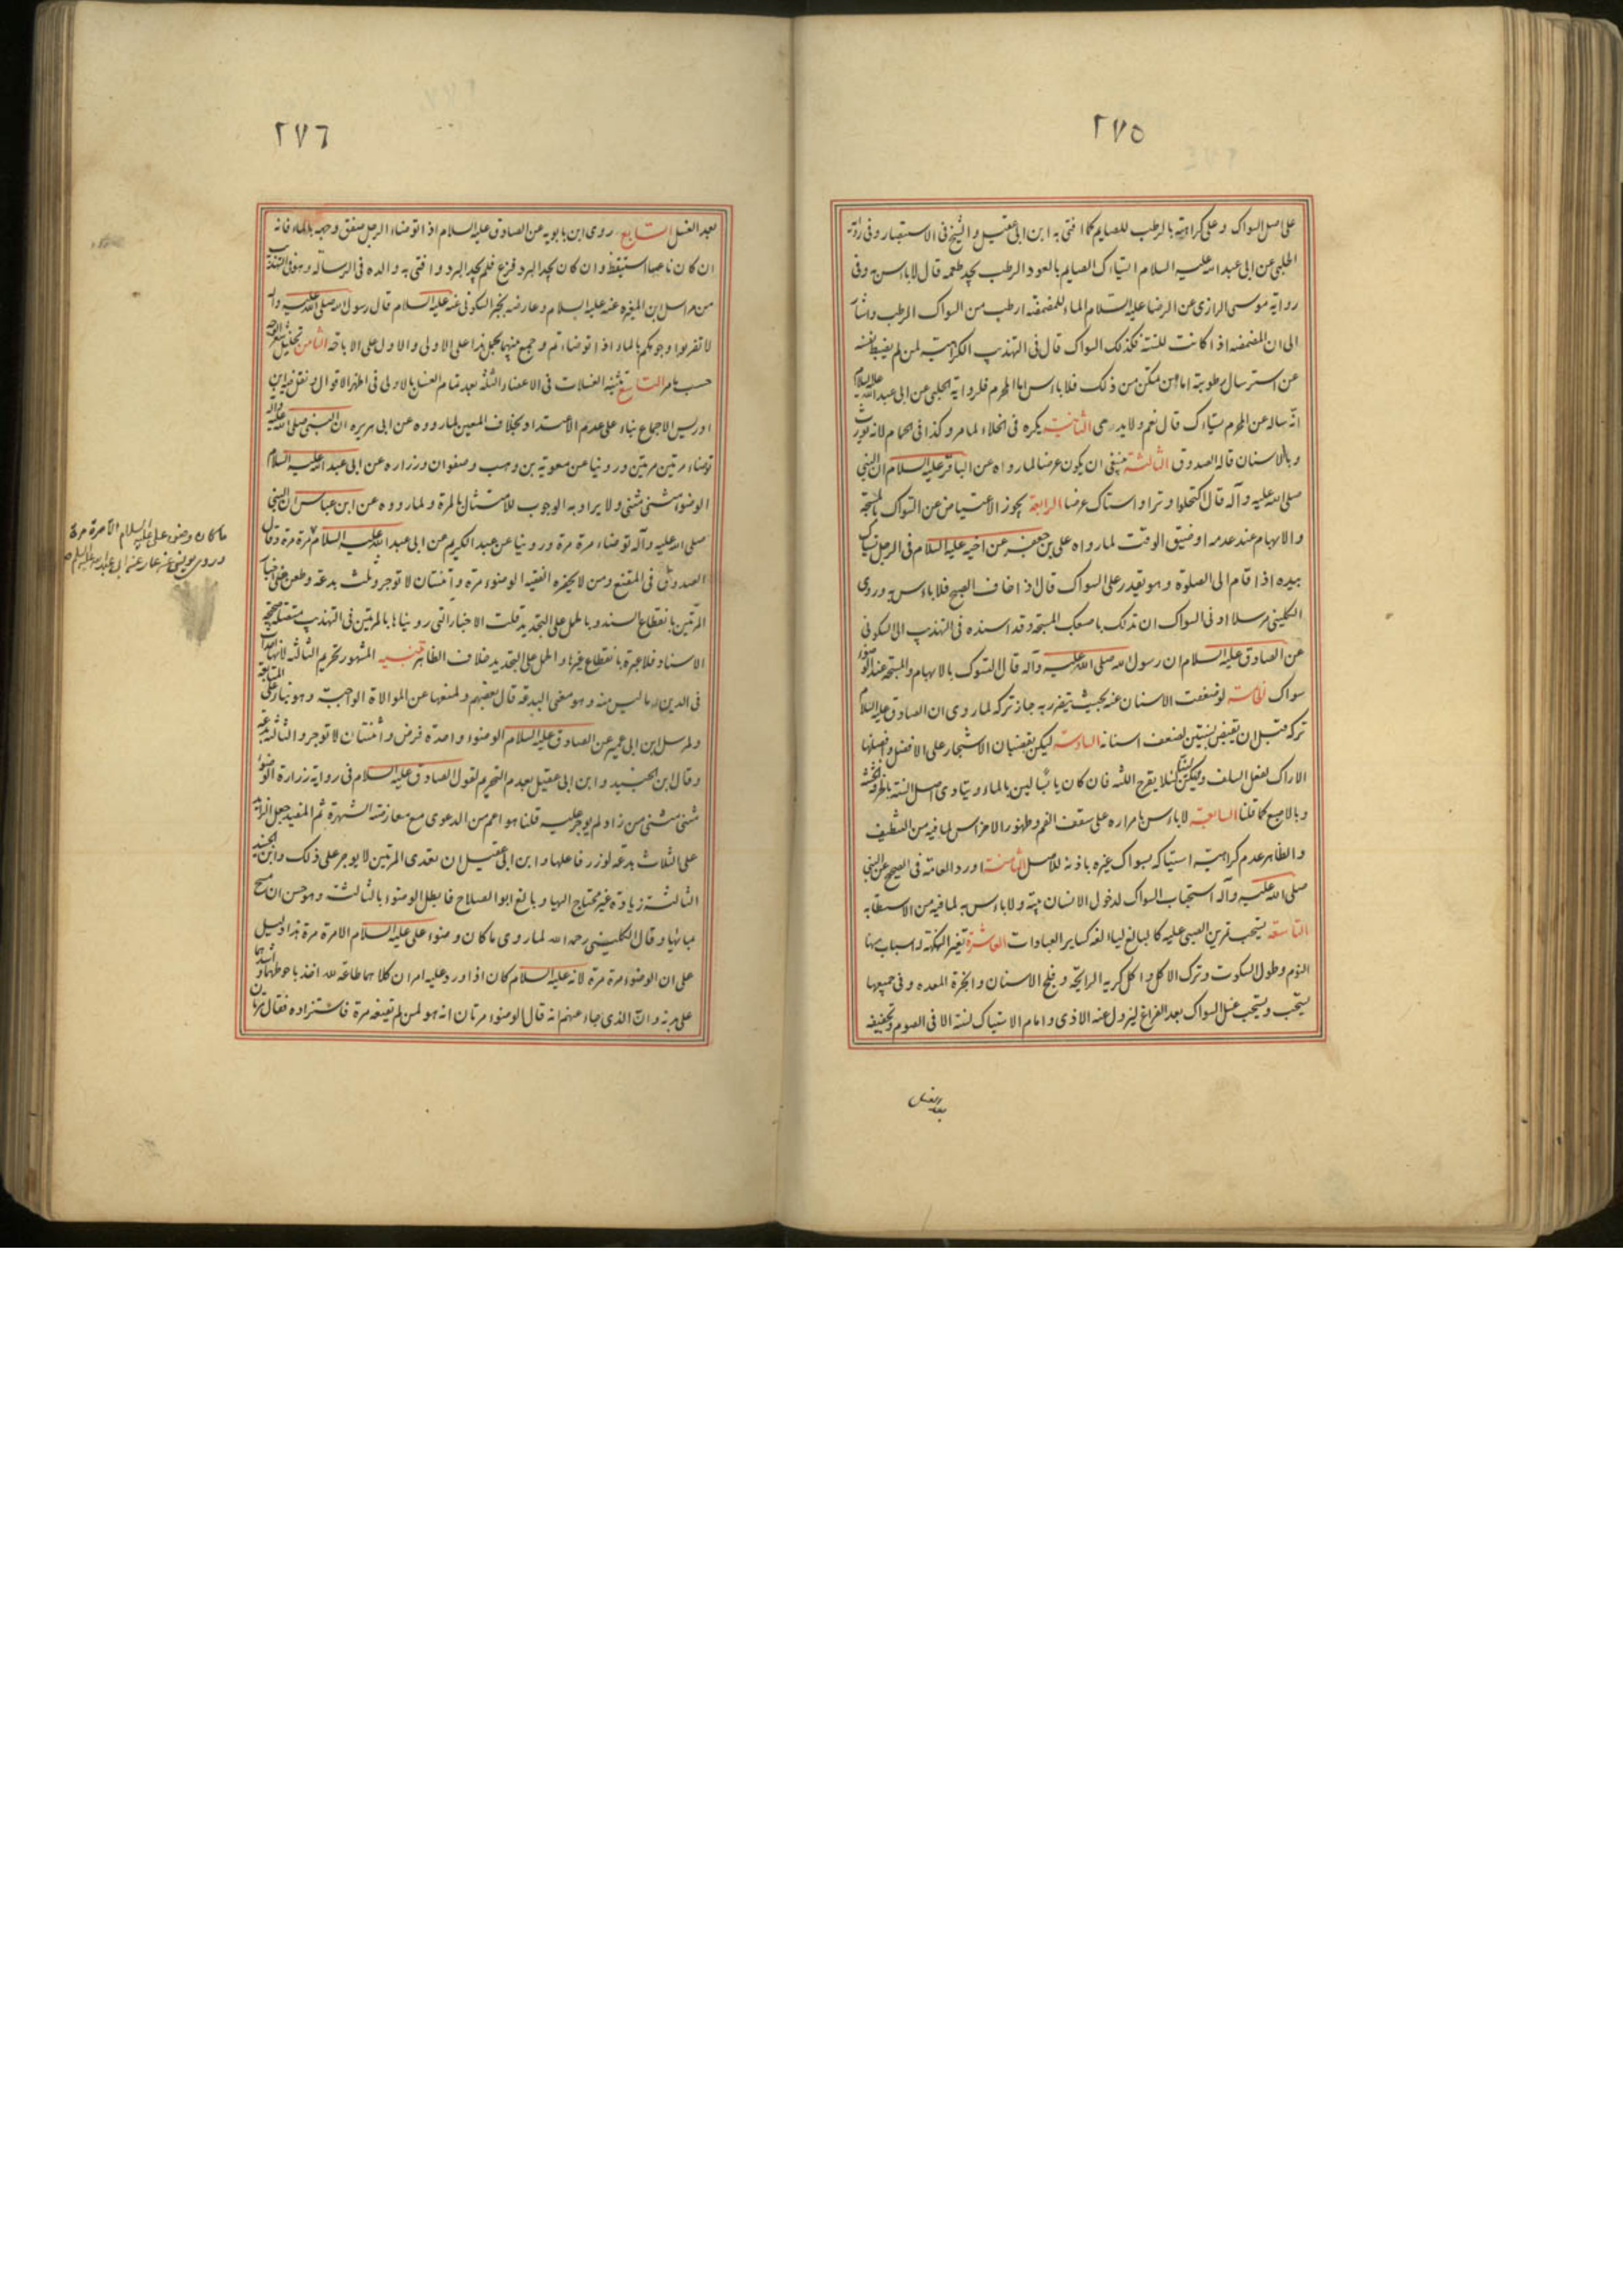 ٢٧٥
على اصل السواك و على كراهته بالرطب للصايم كما افتى به ابن ابى عقيل و الشيخ فى الاستبصار و فى رواية
الحلبى عن ابى عبد الله عليه السلام استياك الصايم بالعود الرطب يجد طعمه قال لا باس به و فى
رواية موسى الرازى عن الرضا عليه السلام الماء للمضمضة ارطب من السواك الرطب و اشار
الى ان المضمضة اذا كانت للسنة فكذلك السواك قال فى التهذيب الكراهية لمن لم يضبط نفسه
عن استرسال رطوبته اما من تمكن من ذلك فلا باس اما المحرم فلرواية الحلبى عن ابى عبد الله عليه السلام
انه ساله عن المحرم يستاك قال نعم و لا يدمى الثانية يكره فى الخلاء لما مر و كذا فى الحمام لانه يورث
وباء الاسنان قاله الصدوق الثالثة ينبغى ان يكون عرضا لما رواه عن الباقر عليه السلام ان النبى
صلى الله عليه و آله قال اكتحلوا وترا و استاكوا عرضا الرابعة يجوز الاعتياض عن السواك بالمسبحة
و الابهام عند عدمه او ضيق الوقت لما رواه على بن جعفر عن اخيه عليه السلام فى الرجل يستاك
بيده اذا قام الى الصلوة و هو يقدر على السواك قال اذا خاف الصبح فلا باس به و روى
الكلينى مرسلا ادنى السواك ان تدلك باصبعك المسبحة و قد اسنده فى التهذيب الى السكونى
عن الصادق عليه السلام ان رسول الله صلى الله عليه و آله قال التسوك بالابهام و المسبحة عند الوضوء
سواك الخامسة لو ضعفت الاسنان عنه بحيث يتضرر به جاز تركه لما روى ان الصادق عليه السلام
تركه قبل ان يقبض بسنتين لضعف اسنانه السادسة ليكن بقضبان الاشجار على الافضل و افضلها
الاراك لفعل السلف و ليكن لينا لئلا يقرح اللثه فان كان يابسا لين بالماء و يتادى اصل السنة بالخرقة الخشنة
و بالاصبع كما قلنا السابعة لا باس بامراره على سقف الفم و ظهور الاضراس لما فيه من التنظيف
و الظاهر عدم كراهية استياكه بسواك غيره باذنه للاصل الثامنة اورد العامة فى الصحيح عن النبى
صلى الله عليه و آله استحباب السواك لدخول الانسان بيته و لا باس به لما فيه من الاستطابه
التاسعة يستحب تمرين الصبى عليه كالبالغ ليالفه كساير العبادات العاشرة تغير النكهة له اسباب منها
النوم و طول السكوت و ترك الاكل و اكل كريه الرايحة و قلح الاسنان و ابخرة المعده و فى جميعها
يستحب و يستحب غسل السواك بعد الفراغ ليزول عنه الاذى و امام الاستياك لسنة الا فى الصوم و تجفيفه
بعد الغسل
٢٧٦
بعد الغسل السابع روى ابن بابويه عن الصادق عليه السلام اذا توضاء الرجل صفق وجهه بالماء فانه
ان كان ناعسا استيقظ و ان كان يجد البرد فزع فلم يجد البرد و افتى به والده فى الرسالة و هو فى التهذيب
من مراسل ابن المغيرة عنه عليه السلام و عارضه بخبر السكونى عنه عليه السلام قال رسول الله صلى الله عليه و آله
لا تضربوا وجوهكم بالماء اذا توضاتم و جمع بينهما بحمل هذا على الاولى و الاول على الاباحة الثامن تخليل شعر الوجه
حسب ما مر التاسع تثنية الغسلات فى الاعضاء الثلثة بعد تمام الغسل بالاولى فى اظهر الاقوال و نقل فيه ابن
ادريس الاجماع بناء على عدم الاعتداد بخلاف المعين لما رووه عن ابى هريرة ان النبى صلى الله عليه و آله
توضاء مرتين مرتين و روينا عن معوية بن وهب و صفوان و زرارة عن ابى عبد الله عليه السلام
الوضوء مثنى مثنى و لا يراد به الوجوب للامتثال بالمرة و لما رووه عن ابن عباس ان النبى
صلى الله عليه و آله توضاء مرة مرة و روينا عن عبد الكريم عن ابى عبد الله عليه السلام مرة مرة و قال
الصدوق فى المقنع و من لا يحضره الفقيه الوضوء مرة و اثنتان لا توجر و ثلث بدعة و طعن فى اخبار
المرتين بانقطاع السند و بالحمل على التجديد قلت الاخبار التى رويناها بالمرتين فى التهذيب متصلة صحيحة
الاسناد فلا عبرة بانقطاع غيرها و الحمل على التجديد خلاف الظاهر تنبيه المشهور تحريم الثالثة لانها احداث
فى الدين ما ليس منه و هو معنى البدعة قال بعضهم و لمنعها عن الموالاة الواجبة و هو بناء على المتابعة
و لمرسل ابن ابى عمير عن الصادق عليه السلام الوضوء واحدة فرض و اثنتان لا توجر و الثالثة بدعة
و قال ابن الجنيد و ابن ابى عقيل بعدم التحريم لقول الصادق عليه السلام فى رواية زرارة الوضوء
مثنى مثنى من زاد لم يوجر عليه قلنا هو اعم من الدعوى مع معارضته الشهرة ثم المفيد جعل الزايد
على الثلاث بدعة يوزر فاعلها و ابن ابى عقيل ان تعدى المرتين لا يوجر على ذلك و ابن الجنيد
الثالثة زيادة غير محتاج اليها و بالغ ابو الصلاح فابطل الوضوء بالثالثة و هو حسن ان مسح
بمائها و قال الكلينى رحمه الله لما روى ما كان وضوء على عليه السلام الا مرة مرة هذا دليل
على ان الوضوء مرة مرة لانه عليه السلام كان اذا ورد عليه امران كلاهما طاعة لله اخذ باحوطهما و اشدهما
على بدنه و ان الذى جاء عنهم انه قال الوضوء مرتان انه هو لمن لم يقنعه مرة فاستزاده فقال مرتان
ما كان وضوء على عليه السلام الا مرة مرة
و روى عن ابى عبد الله عليه السلام